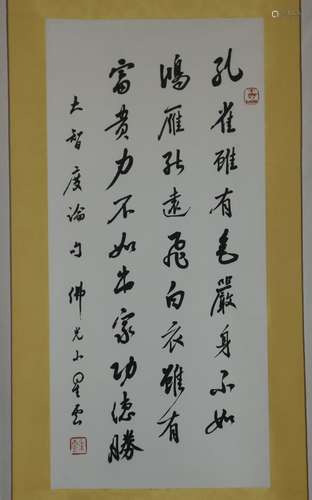 孔雀雖有色嚴身不如
鴻雁能遠飛白衣雖有
富貴力不如出家功德勝
大智度論句 佛光山星雲